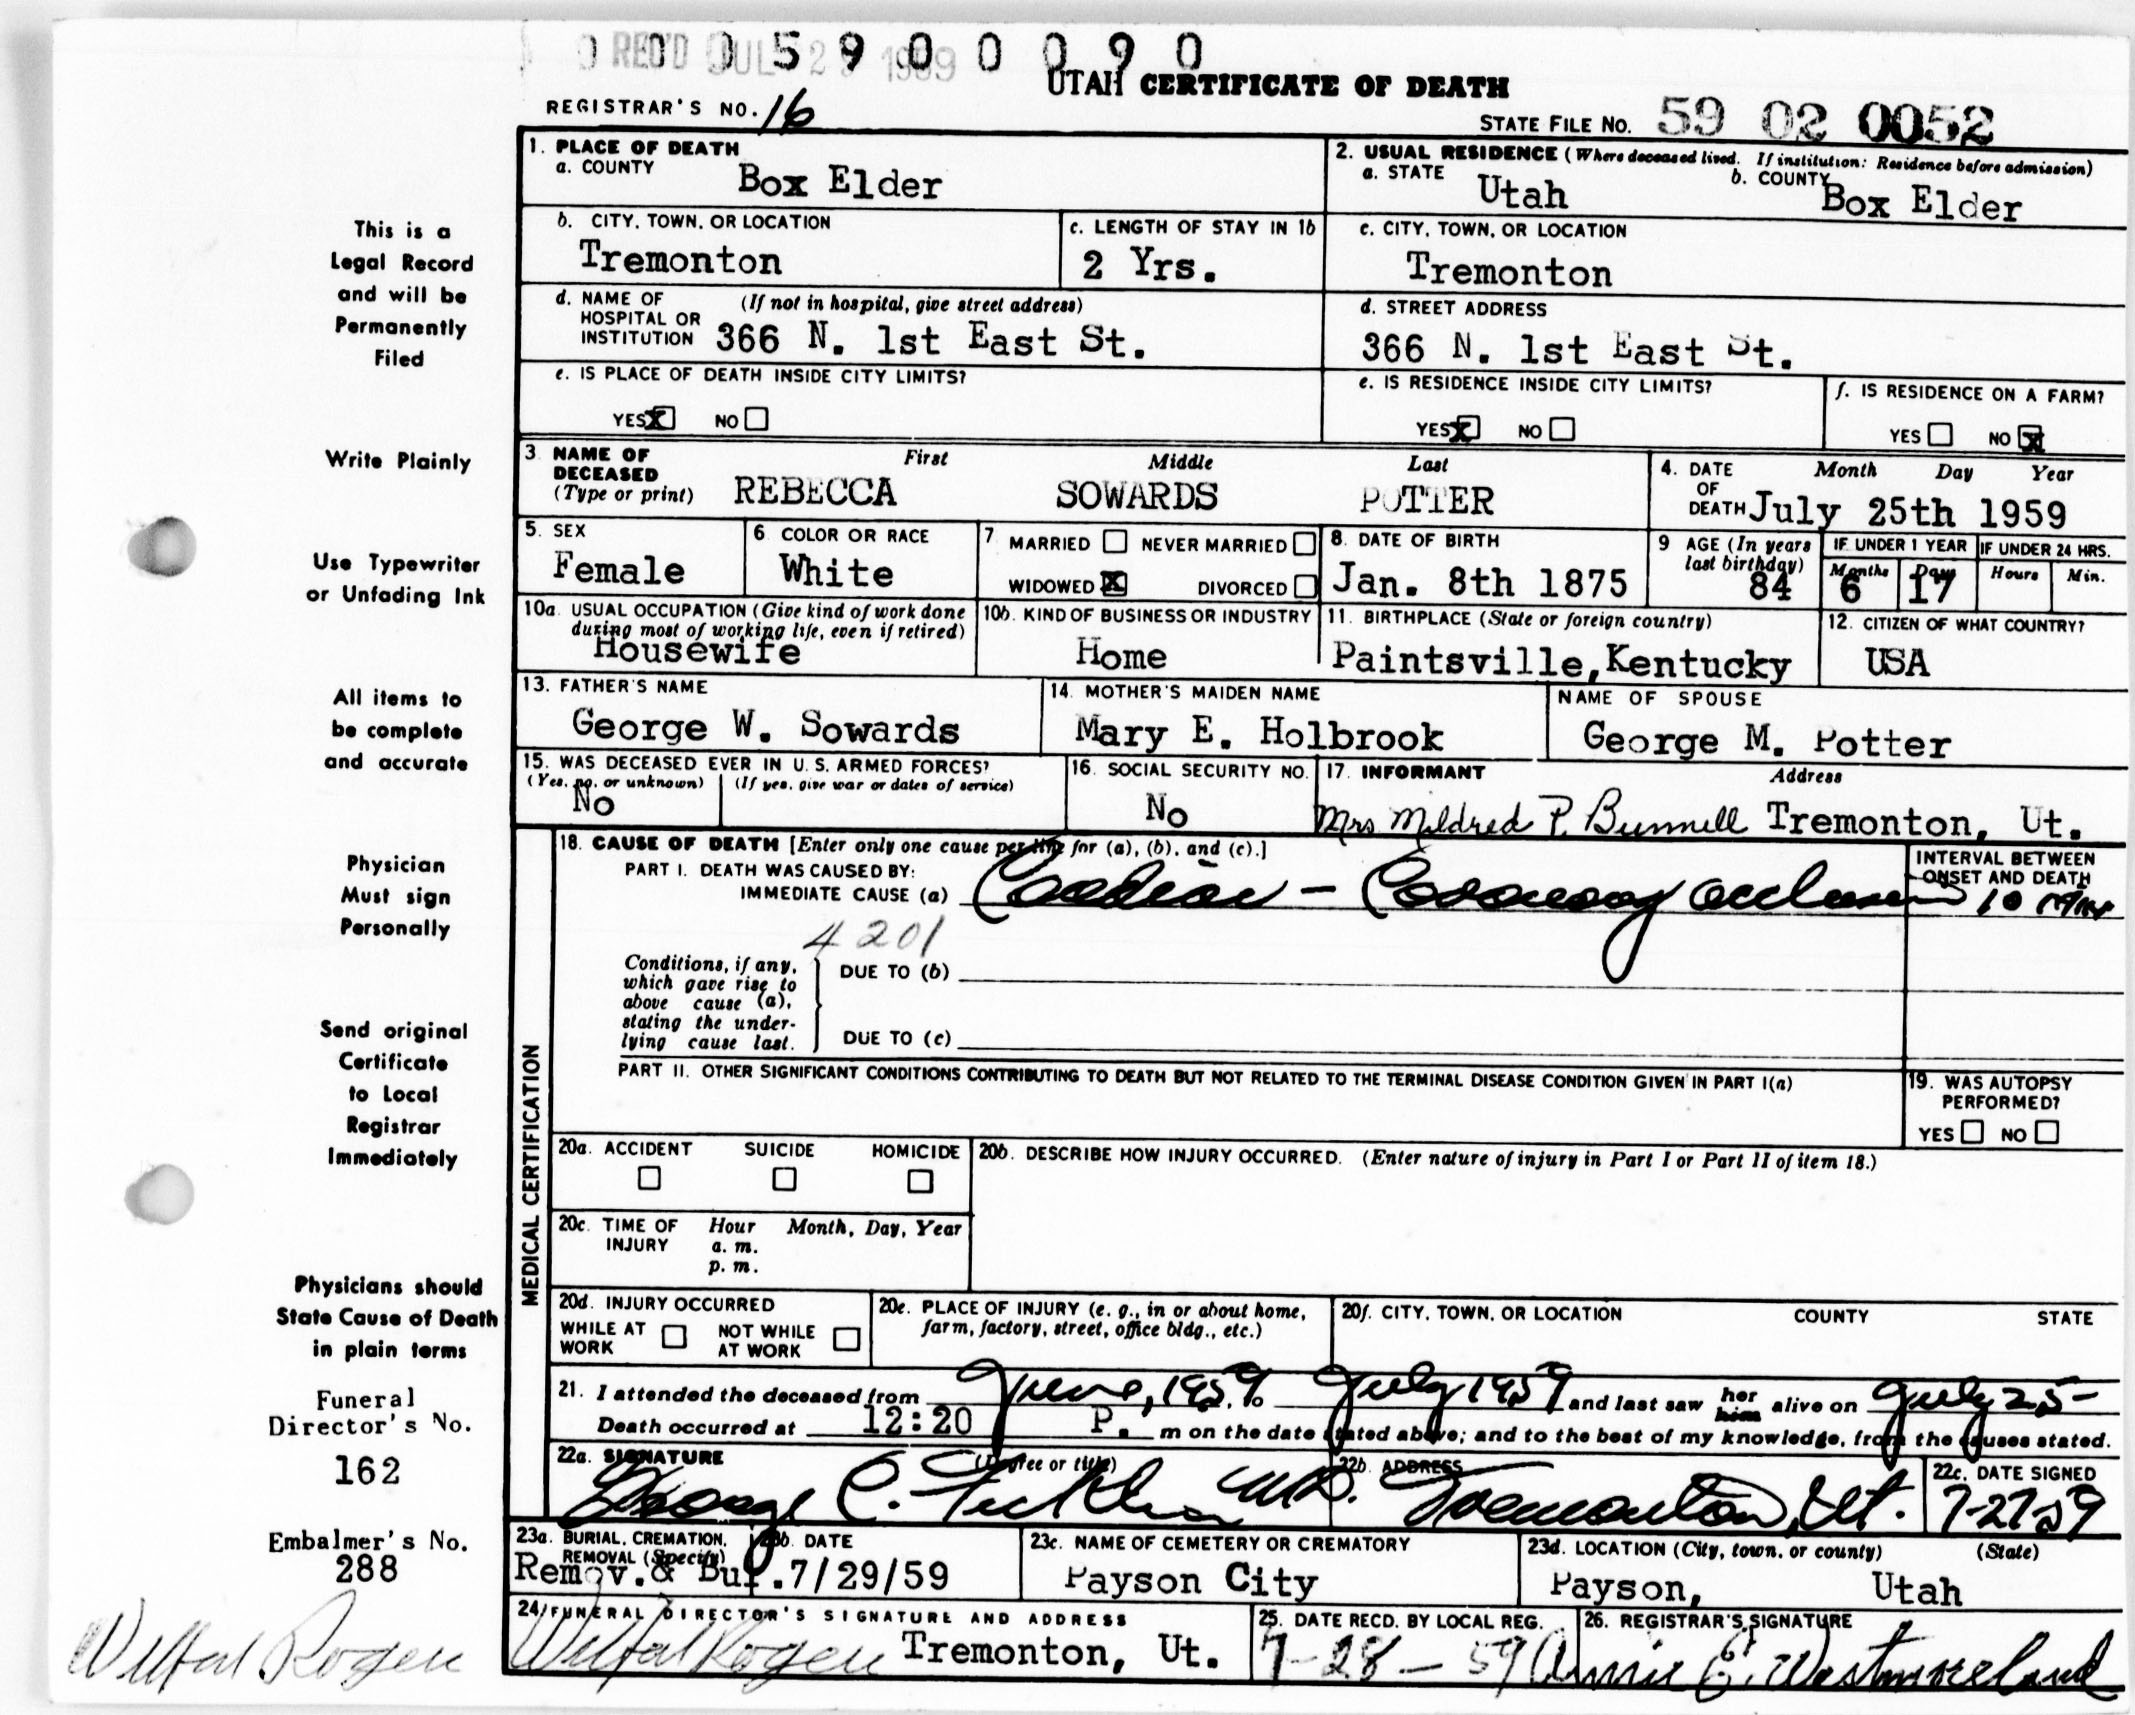 0 0 0 5 9 0 0 0 9 0
REC'D JUL 2 1959
UTAH CERTIFICATE OF DEATH
REGISTRAR'S NO. 16
STATE FILE NO. 59 02 0052
1. PLACE OF DEATH
a. COUNTY Box Elder
2. USUAL RESIDENCE (Where deceased lived. If institution: Residence before admission)
a. STATE Utah b. COUNTY Box Elder
b. CITY, TOWN, OR LOCATION Tremonton
c. LENGTH OF STAY IN 1b 2 Yrs.
c. CITY, TOWN, OR LOCATION Tremonton
d. NAME OF HOSPITAL OR INSTITUTION (If not in hospital, give street address) 366 N. 1st East St.
d. STREET ADDRESS 366 N. 1st East St.
e. IS PLACE OF DEATH INSIDE CITY LIMITS?
YES X NO
e. IS RESIDENCE INSIDE CITY LIMITS?
YES X NO
f. IS RESIDENCE ON A FARM?
YES NO X
3. NAME OF DECEASED (Type or print) First Middle Last
REBECCA SOWARDS POTTER
4. DATE OF DEATH Month Day Year
July 25th 1959
5. SEX Female
6. COLOR OR RACE White
7. MARRIED NEVER MARRIED
WIDOWED X DIVORCED
8. DATE OF BIRTH Jan. 8th 1875
9 AGE (In years last birthday) 84
IF UNDER 1 YEAR Months 6 Days 17
IF UNDER 24 HRS. Hours Min.
10a. USUAL OCCUPATION (Give kind of work done during most of working life, even if retired) Housewife
10b. KIND OF BUSINESS OR INDUSTRY Home
11. BIRTHPLACE (State or foreign country) Paintsville, Kentucky
12. CITIZEN OF WHAT COUNTRY? USA
13. FATHER'S NAME George W. Sowards
14. MOTHER'S MAIDEN NAME Mary E. Holbrook
NAME OF SPOUSE George M. Potter
15. WAS DECEASED EVER IN U. S. ARMED FORCES?
(Yes, no, or unknown) No (If yes, give war or dates of service)
16. SOCIAL SECURITY NO. No
17. INFORMANT Address
Mrs Mildred P. Bunnell Tremonton, Ut.
MEDICAL CERTIFICATION
18. CAUSE OF DEATH [Enter only one cause per line for (a), (b), and (c).]
PART I. DEATH WAS CAUSED BY:
IMMEDIATE CAUSE (a) Cardiac - Coronary occlusion
INTERVAL BETWEEN ONSET AND DEATH 10 min
4201
Conditions, if any, which gave rise to above cause (a), stating the underlying cause last.
DUE TO (b)
DUE TO (c)
PART II. OTHER SIGNIFICANT CONDITIONS CONTRIBUTING TO DEATH BUT NOT RELATED TO THE TERMINAL DISEASE CONDITION GIVEN IN PART I(a)
19. WAS AUTOPSY PERFORMED?
YES NO
20a. ACCIDENT SUICIDE HOMICIDE
20b. DESCRIBE HOW INJURY OCCURRED. (Enter nature of injury in Part I or Part II of item 18.)
20c. TIME OF INJURY Hour Month, Day, Year
a. m.
p. m.
20d. INJURY OCCURRED
WHILE AT WORK NOT WHILE AT WORK
20e. PLACE OF INJURY (e. g., in or about home, farm, factory, street, office bldg., etc.)
20f. CITY, TOWN, OR LOCATION COUNTY STATE
21. I attended the deceased from June, 1959 to July 1959 and last saw her him alive on July 25-
Death occurred at 12:20 P. m on the date stated above; and to the best of my knowledge, from the causes stated.
22a. SIGNATURE (Degree or title)
George C. M.D.
22b. ADDRESS Tremonton, Ut.
22c. DATE SIGNED 7-27-59
23a. BURIAL, CREMATION, REMOVAL (Specify) Remov. & Bur.
23b. DATE 7/29/59
23c. NAME OF CEMETERY OR CREMATORY Payson City
23d. LOCATION (City, town, or county) (State)
Payson, Utah
24. FUNERAL DIRECTOR'S SIGNATURE AND ADDRESS
Tremonton, Ut.
25. DATE RECD. BY LOCAL REG. 7-28-59
26. REGISTRAR'S SIGNATURE
Annie E. Westmoreland
This is a
Legal Record
and will be
Permanently
Filed
Write Plainly
Use Typewriter
or Unfading Ink
All items to
be complete
and accurate
Physician
Must sign
Personally
Send original
Certificate
to Local
Registrar
Immediately
Physicians should
State Cause of Death
in plain terms
Funeral
Director's No.
162
Embalmer's No.
288